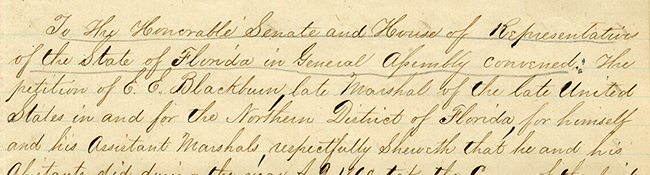 To The Honorable Senate and House of Representatives
of the State of Florida in General Assembly convened: The
petition of E. E. Blackburn, late Marshal of the late United
States in and for the Northern District of Florida, for himself
and his Assistant Marshals, respectfully sheweth that he and his
did the year A.D. 1860 the of the